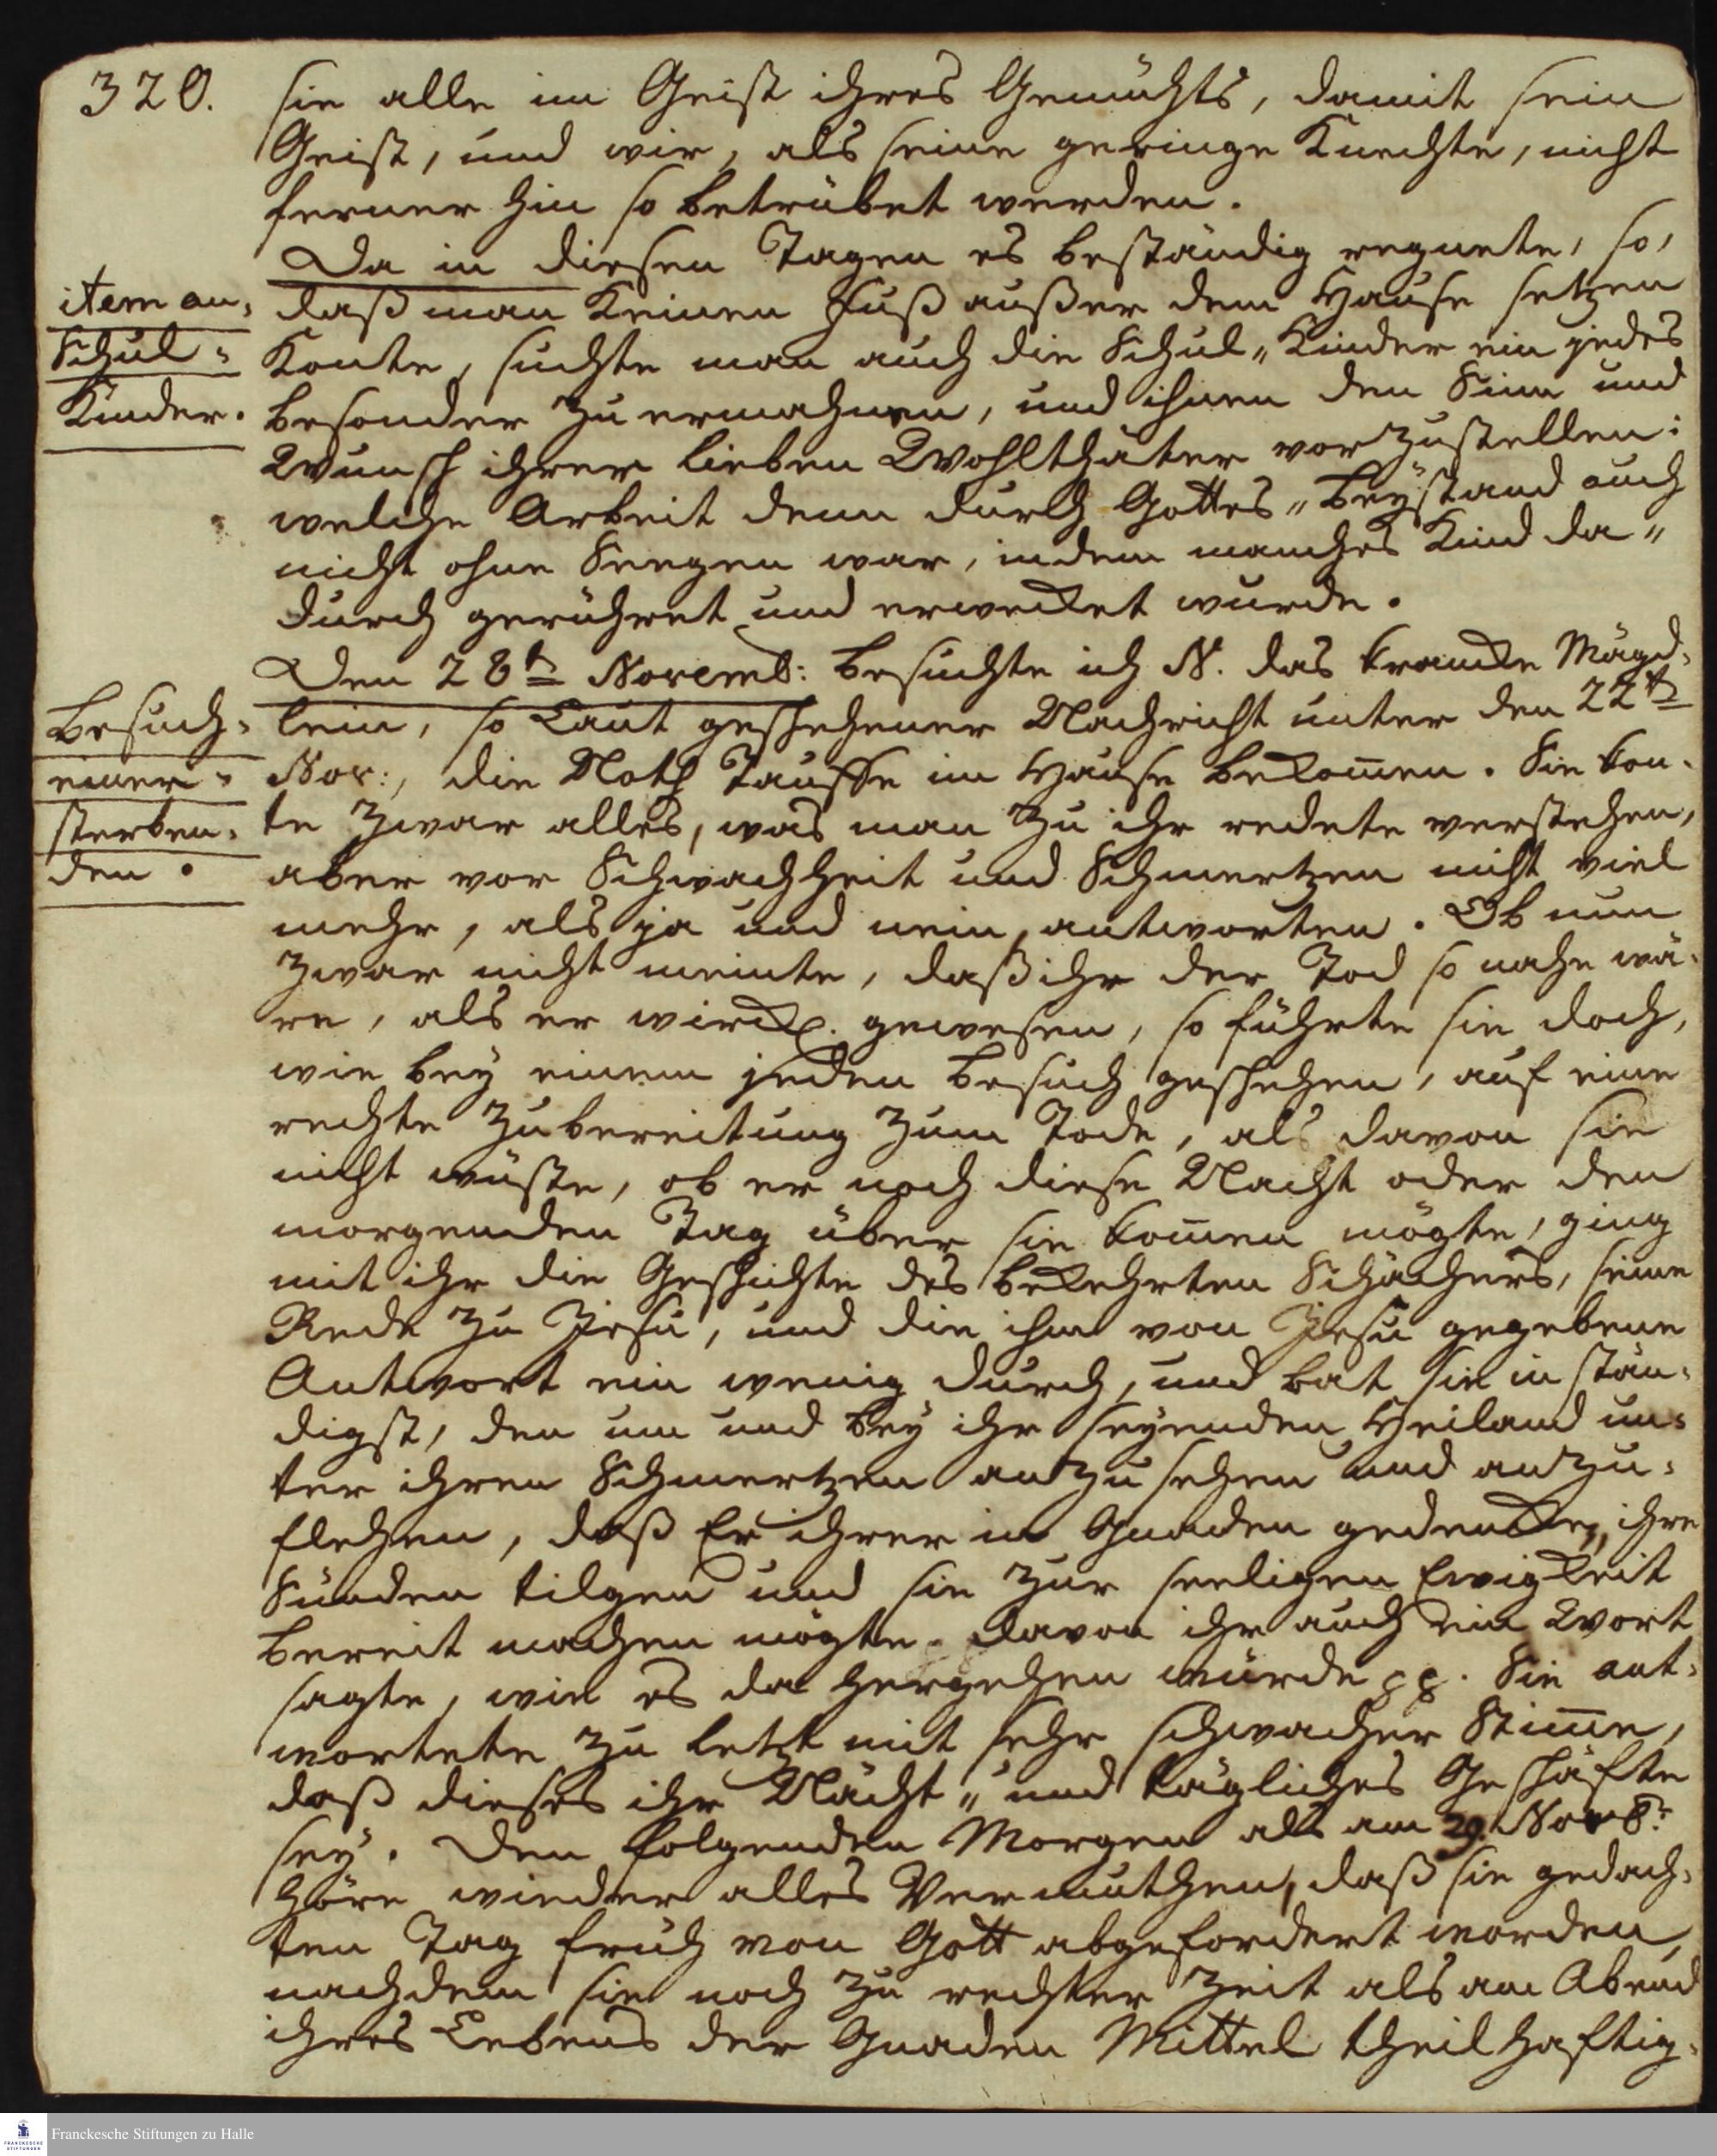 320.
sie alle im Geist ihres Gemüths, damit sein
Geist, und wir, als seine geringe Knechte, nicht
ferner hin so betrübet werden.
Da in diesen Tagen es beständig regnete, so,
item an-
Schul-
Kinder.
daß man keinen Fuß außer dem Hause setzen
konte, suchte man auch die Schul-Kinder ein jedes
besonder zu ermahnen, und ihnen den Sinn und
Wunsch ihrer lieben Wohlthäter vorzustellen:
welche Arbeit denn durch Gottes-Beystand auch
nicht ohne Seegen war, indem manches Kind da-
durch gerühret und erwecket wurde.
Den 28t. Novemb: besuchte ich N. das krancke Mägd-
Besuch-
einer-
sterben-
den.
lein, so Laut geschehener Nachricht unter den 22t.
Nov:, die Noth Tauffe im Hause bekom̄en. Sie kon-
te zwar alles, was man zu ihr redete verstehen,
aber vor Schwachheit und Schmertzen nicht viel
mehr, als ja und nein, antworten. Ob nun
zwar nicht meinte, daß ihr der Tod so nahe wä-
re, als er wirckl. gewesen, so führte sie doch,
wie bey einem jeden Besuch geschehen, auf eine
rechte Zubereitung zum Tode, als davon sie
nicht wüste, ob er noch diese Nacht oder den
morgenden Tag über sie kom̄en mögte, ging
mit ihr die Geschichte des bekehrten Schächers, seine
Rede zu Jesu, und die ihm von Jesu gegebene
Antwort ein wenig durch, und bat sie in stän-
digst, den um und bey ihr seyenden Heiland un-
ter ihren Schmertzen anzusehen und anzu-
flehen, daß Er ihrer in Gnaden gedencken, ihre
Sünden tilgen und sie zur seeligen Ewigkeit
bereit machen mögte. davon ihr auch ein Wort
sagte, wie es da hergehen würde pp. Sie ant-
wortete zu letzt mit sehr schwacher Stim̄e,
daß dieses ihr Nächt- und tägliches Geschäfte
sey. Den folgenden Morgen als am 29. Novb:
höre wieder alles Vermuthen, daß sie gedach-
ten Tag früh von Gott abgefordert worden,
nachdem sie noch zu rechter Zeit als am Abend
ihres Lebens der Gnaden Mittel theilhaftig-
Franckesche Stiftungen zu Halle
FRANCKESCHE
STIFTUNGEN